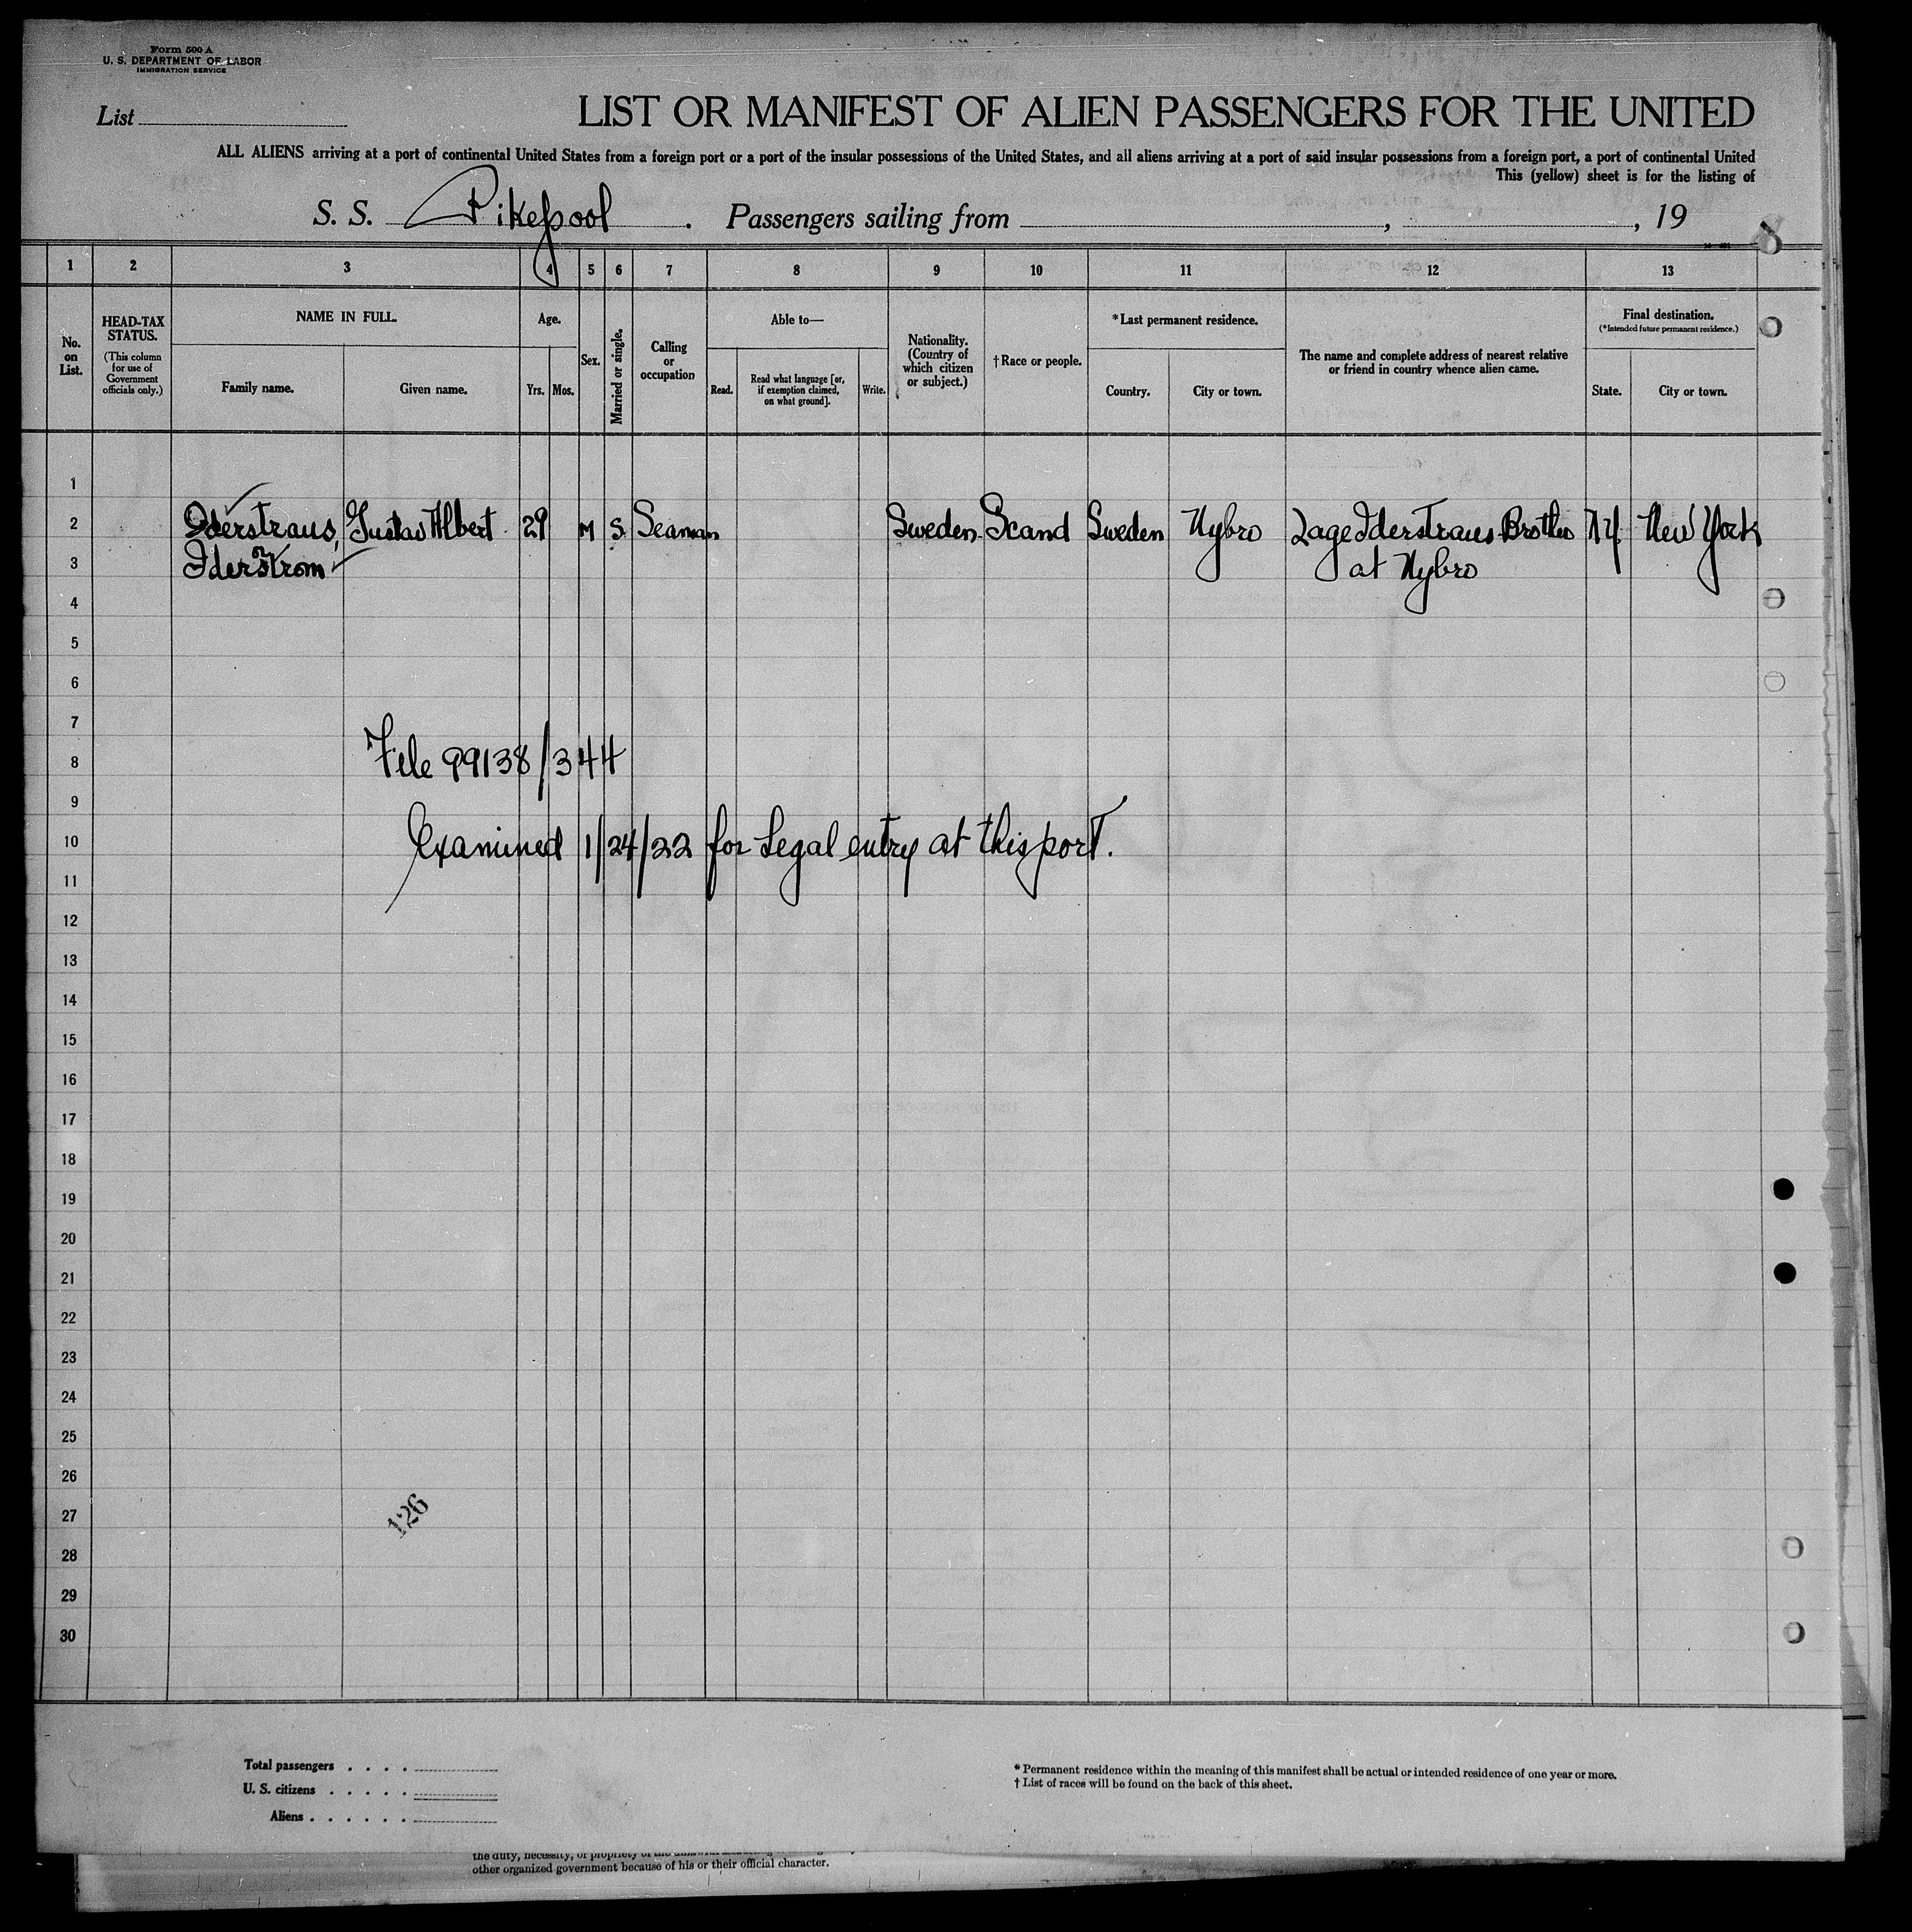 Form 500 A
U. S. DEPARTMENT OF LABOR
IMMIGRATION SERVICE
List
LIST OR MANIFEST OF ALIEN PASSENGERS FOR THE UNITED
ALL ALIENS arriving at a port of continental United States from a foreign port or a port of the insular possessions of the United States, and all aliens arriving at a port of said insular possessions from a foreign port, a port of continental United
This (yellow) sheet is for the listing of
S. S. Pikepool . Passengers sailing from , , 19
1 2 3 4 5 6 7 8 9 10 11 12 13
No. on List.
HEAD-TAX STATUS.
(This column for use of Government officials only.)
NAME IN FULL.
Family name.
Given name.
Age.
Yrs. Mos.
Sex.
Married or single.
Calling or occupation
Able to—
Read.
Read what language [or, if exemption claimed, on what ground].
Write.
Nationality. (Country of which citizen or subject.)
†Race or people.
*Last permanent residence.
Country.
City or town.
The name and complete address of nearest relative or friend in country whence alien came.
Final destination.
(*Intended future permanent residence.)
State.
City or town.
1
2 Iderstraus, Gustav Albert 29 M S Seaman Sweden Scand Sweden Nybro Lage Iderstraus Brother N.Y. New York
or
3 Iderstrom at Nybro
4
5
6
7
8 File 99138/344
9
10 Examined 1/24/22 for Legal entry at this port.
11
12
13
14
15
16
17
18
19
20
21
22
23
24
25
26
27 126
28
29
30
Total passengers . . . .
U. S. citizens . . . . .
Aliens . . . . . .
* Permanent residence within the meaning of this manifest shall be actual or intended residence of one year or more.
† List of races will be found on the back of this sheet.
the duty, necessity, or propriety of the
other organized government because of his or their official character.